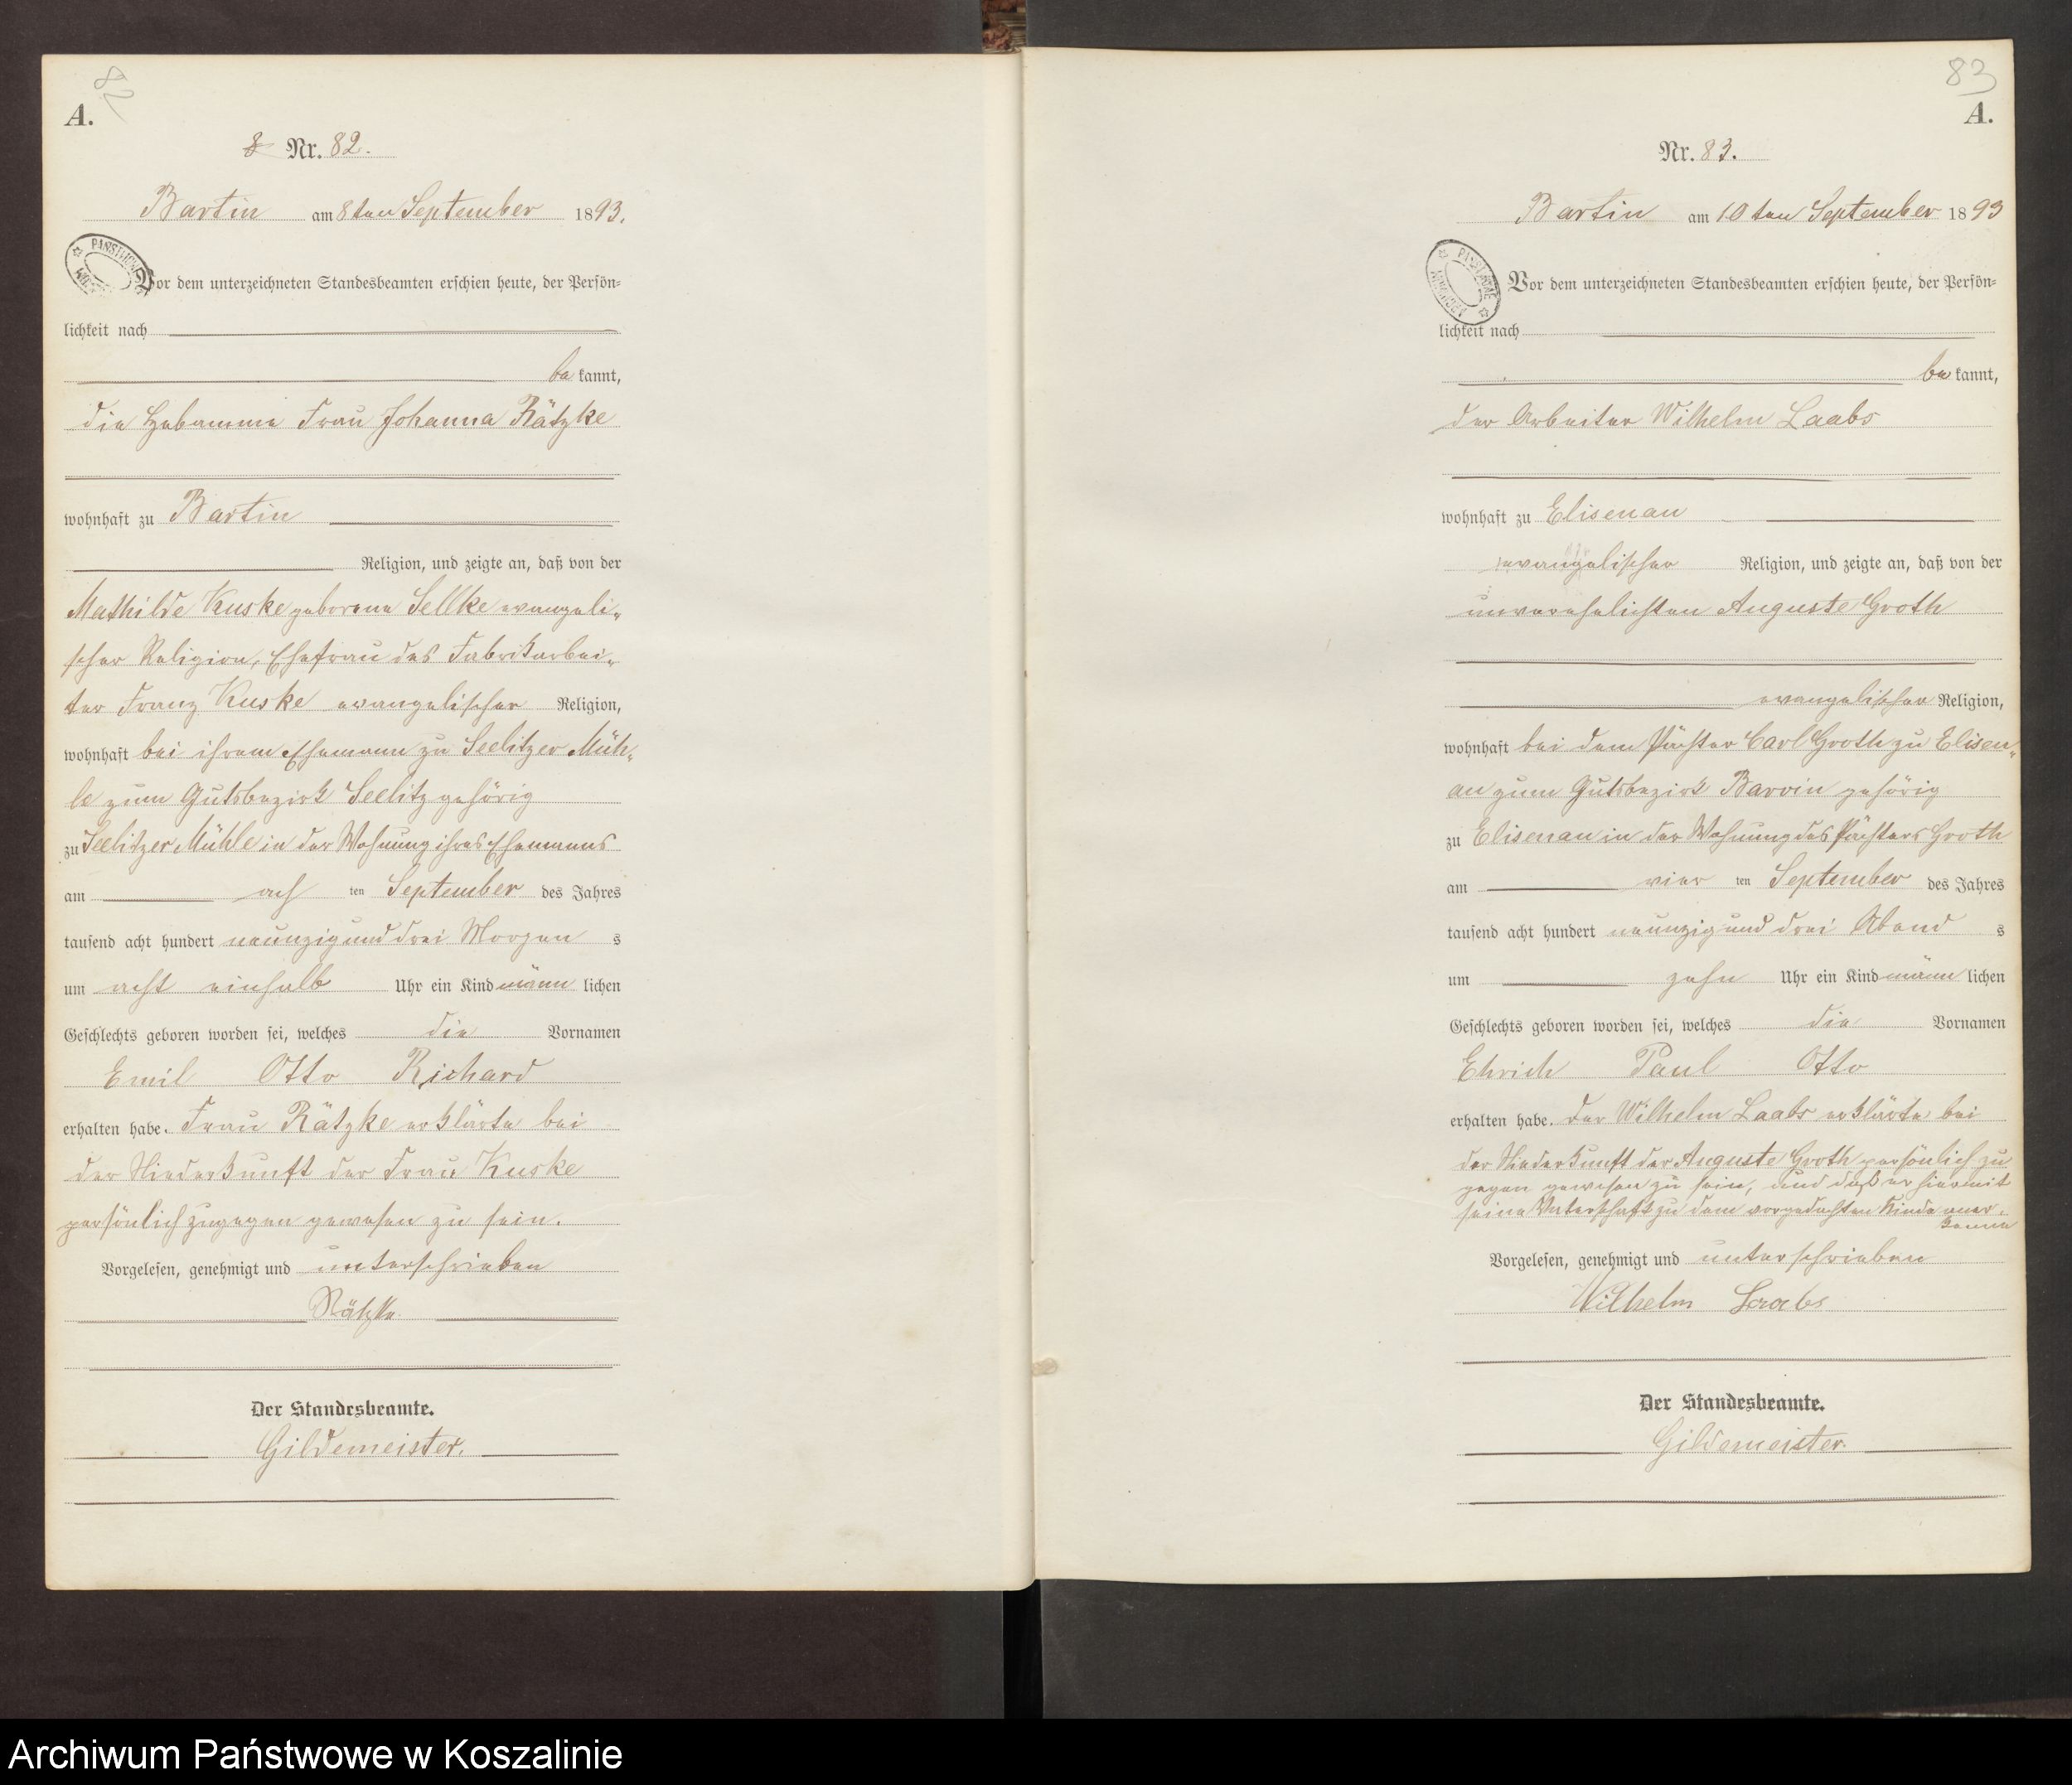 82
A.
8 Nr. 82.
Bartin am 8ten September 1893.
Vor dem unterzeichneten Standesbeamten erschien heute, der Persön=
lichkeit nach
bekannt,
die Hebamme Frau Johanna Rätzke
wohnhaft zu Bartin
Religion, und zeigte an, daß von der
Mathilde Kuske geborene Sellke evangeli=
scher Religion, Ehefrau des Fabrikarbei=
ter Franz Kuske evangelischer Religion,
wohnhaft bei ihrem Ehemann zu Seelitzer Müh=
le zum Gutsbezirk Seelitz gehörig
zu Seelitzer Mühle in der Wohnung ihres Ehemanns
am ach ten September des Jahres
tausend acht hundert neunzig und drei Morgen s
um acht einhalb Uhr ein Kind männ lichen
Geschlechts geboren worden sei, welches die Vornamen
Emil Otto Richard
erhalten habe. Frau Rätzke erklärte bei
der Niederkunft der Frau Kuske
persönlich zugegen gewesen zu sein.
Vorgelesen, genehmigt und unterschrieben
Rätzke
Der Standesbeamte.
Gildemeister.
83
A.
Nr. 83.
Bartin am 10ten September 1893
PAŃSTWOWE ARCHIWUM
Vor dem unterzeichneten Standesbeamten erschien heute, der Persön=
lichkeit nach
bekannt,
der Arbeiter Wilhelm Laabs
wohnhaft zu Elisenau
evangelischer Religion, und zeigte an, daß von der
unverehelichten Auguste Groth
evangelischer Religion,
wohnhaft bei dem Pächter Carl Groth zu Elisen=
au zum Gutsbezirk Barvin gehörig
zu Elisenau in der Wohnung des Pächters Groth
am vier ten September des Jahres
tausend acht hundert neunzig und drei Abend s
um zehn Uhr ein Kind männ lichen
Geschlechts geboren worden sei, welches die Vornamen
Ehrich Paul Otto
erhalten habe. Der Wilhelm Laabs erklärte bei
der Niederkunft der Auguste Groth persönlich zu
gegen gewesen zu sein, und daß er hiermit
seine Vaterschaft zu dem vorgedachten Kinde aner=
kenne
Vorgelesen, genehmigt und unterschrieben
Wilhelm Laabs
Der Standesbeamte.
Gildemeister.
Archiwum Państwowe w Koszalinie